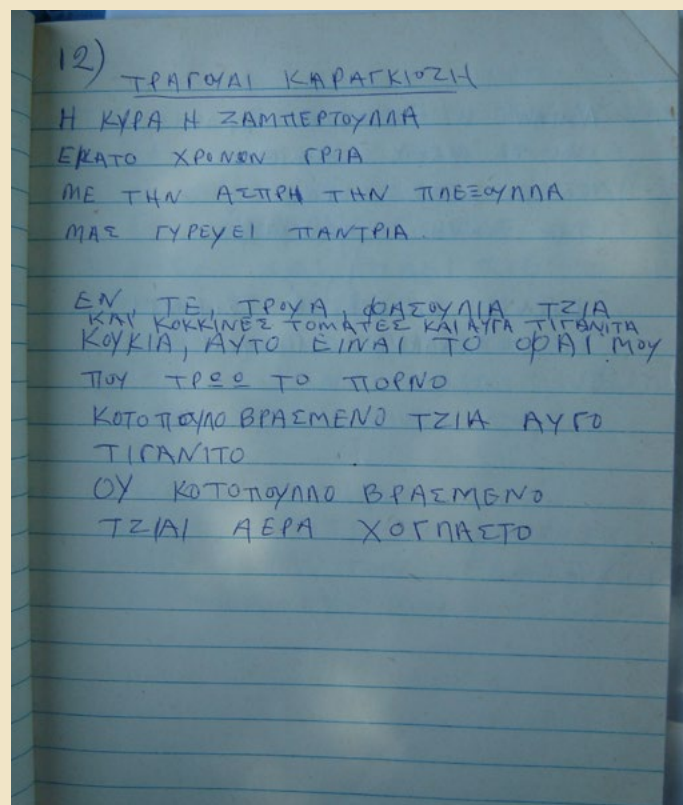 12) ΤΡΑΓΟΥΔΙ ΚΑΡΑΓΚΙΟΖΗ
Η ΚΥΡΑ Η ΖΑΜΠΕΡΤΟΥΛΛΑ
ΕΚΑΤΟ ΧΡΟΝΩΝ ΓΡΙΑ
ΜΕ ΤΗΝ ΑΣΠΡΗ ΤΗΝ ΠΛΕΞΟΥΛΛΑ
ΜΑΣ ΓΥΡΕΥΕΙ ΠΑΝΤΡΙΑ.
ΕΝ, ΤΕ, ΤΡΟΥΑ, ΦΑΣΟΥΛΙΑ ΤΖΙΑ
ΚΑΙ ΚΟΚΚΙΝΕΣ ΤΟΜΑΤΕΣ ΚΑΙ ΑΥΓΑ ΤΙΓΑΝΙΤΑ
ΚΟΥΚΙΑ, ΑΥΤΟ ΕΙΝΑΙ ΤΟ ΦΑΙ ΜΟΥ
ΠΟΥ ΤΡΩΩ ΤΟ ΠΟΡΝΟ
ΚΟΤΟΠΟΥΛΟ ΒΡΑΣΜΕΝΟ ΤΖΙΑ ΑΥΓΟ
ΤΙΓΑΝΙΤΟ
ΟΥ ΚΟΤΟΠΟΥΛΛΟ ΒΡΑΣΜΕΝΟ
ΤΖΙΑΙ ΑΕΡΑ ΚΟΠΑΝΙΣΤΟ